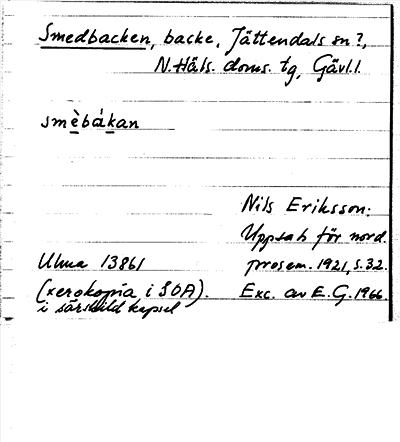 Smedbacken, backe, Jättendals sn?,
N. Häls. doms. tg, Gävl. l.
smèbákan
Nils Eriksson:
Uppsats för nord.
Ulma 13861 prosem. 1921, s. 32.
(xerokopia i SOA). Exc. av E. G. 1966.
i särskild kapsel